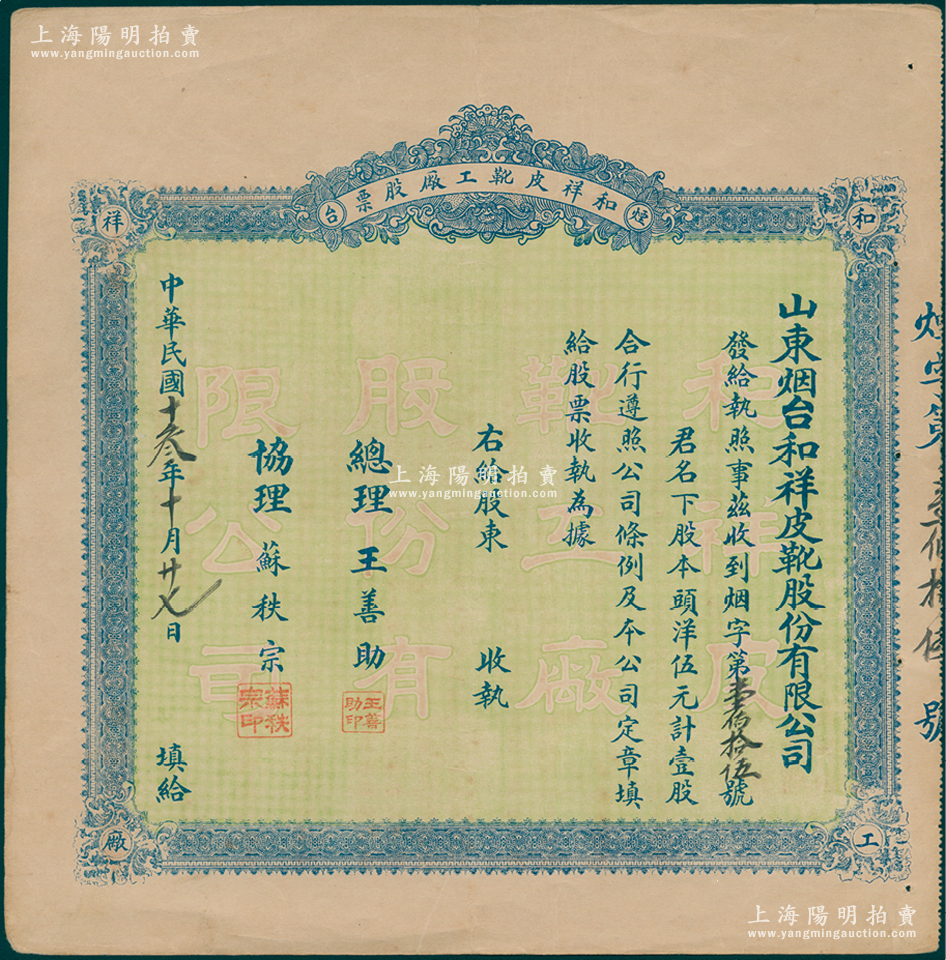 上海陽明拍賣
www.yangmingauction.com
和祥皮靴工廠股票
烟
台
和
祥
工
廠
山東烟台和祥皮靴股份有限公司
發給執照事茲收到烟字第壹佰拾伍號
君名下股本頭洋伍元計壹股
合行遵照公司條例及本公司定章填
給股票收執為據
右給股東 收執
總理 王善助
王善助印
協理 蘇秩宗
蘇秩宗印
中華民國十叁年十月廿七日 填給
和祥皮靴工廠股份有限公司
烟字第壹佰拾伍號
上海陽明拍賣
www.yangmingauction.com
上海陽明拍賣
www.yangmingauction.com